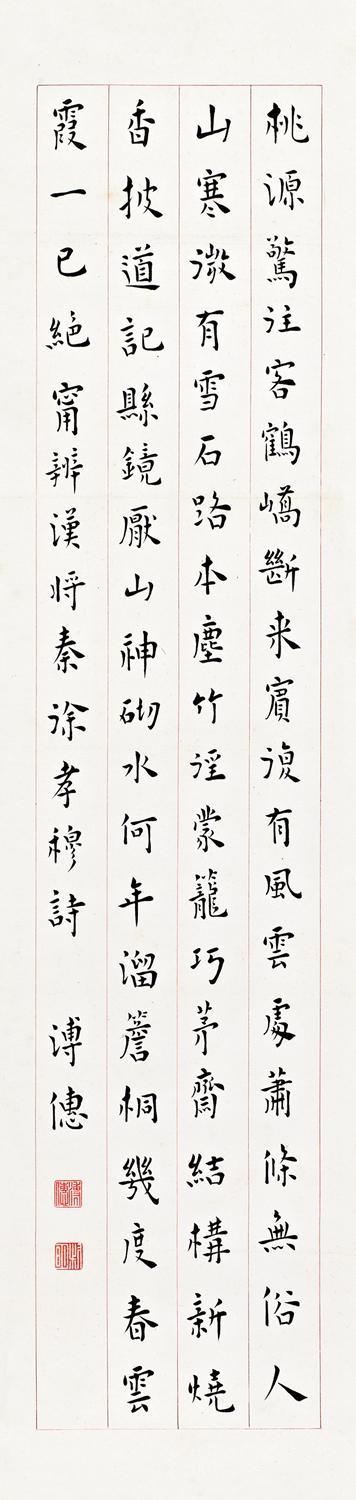 桃源驚往客鶴嶠斷来賓復有風雲處蕭條無俗人
山寒微有雪石路本塵竹徑蒙籠巧茅齋結構新燒
香披道記縣鏡厭山神砌水何年溜簷桐幾度春雲
霞一已絕甯辨漢將秦徐孝穆詩 溥僡